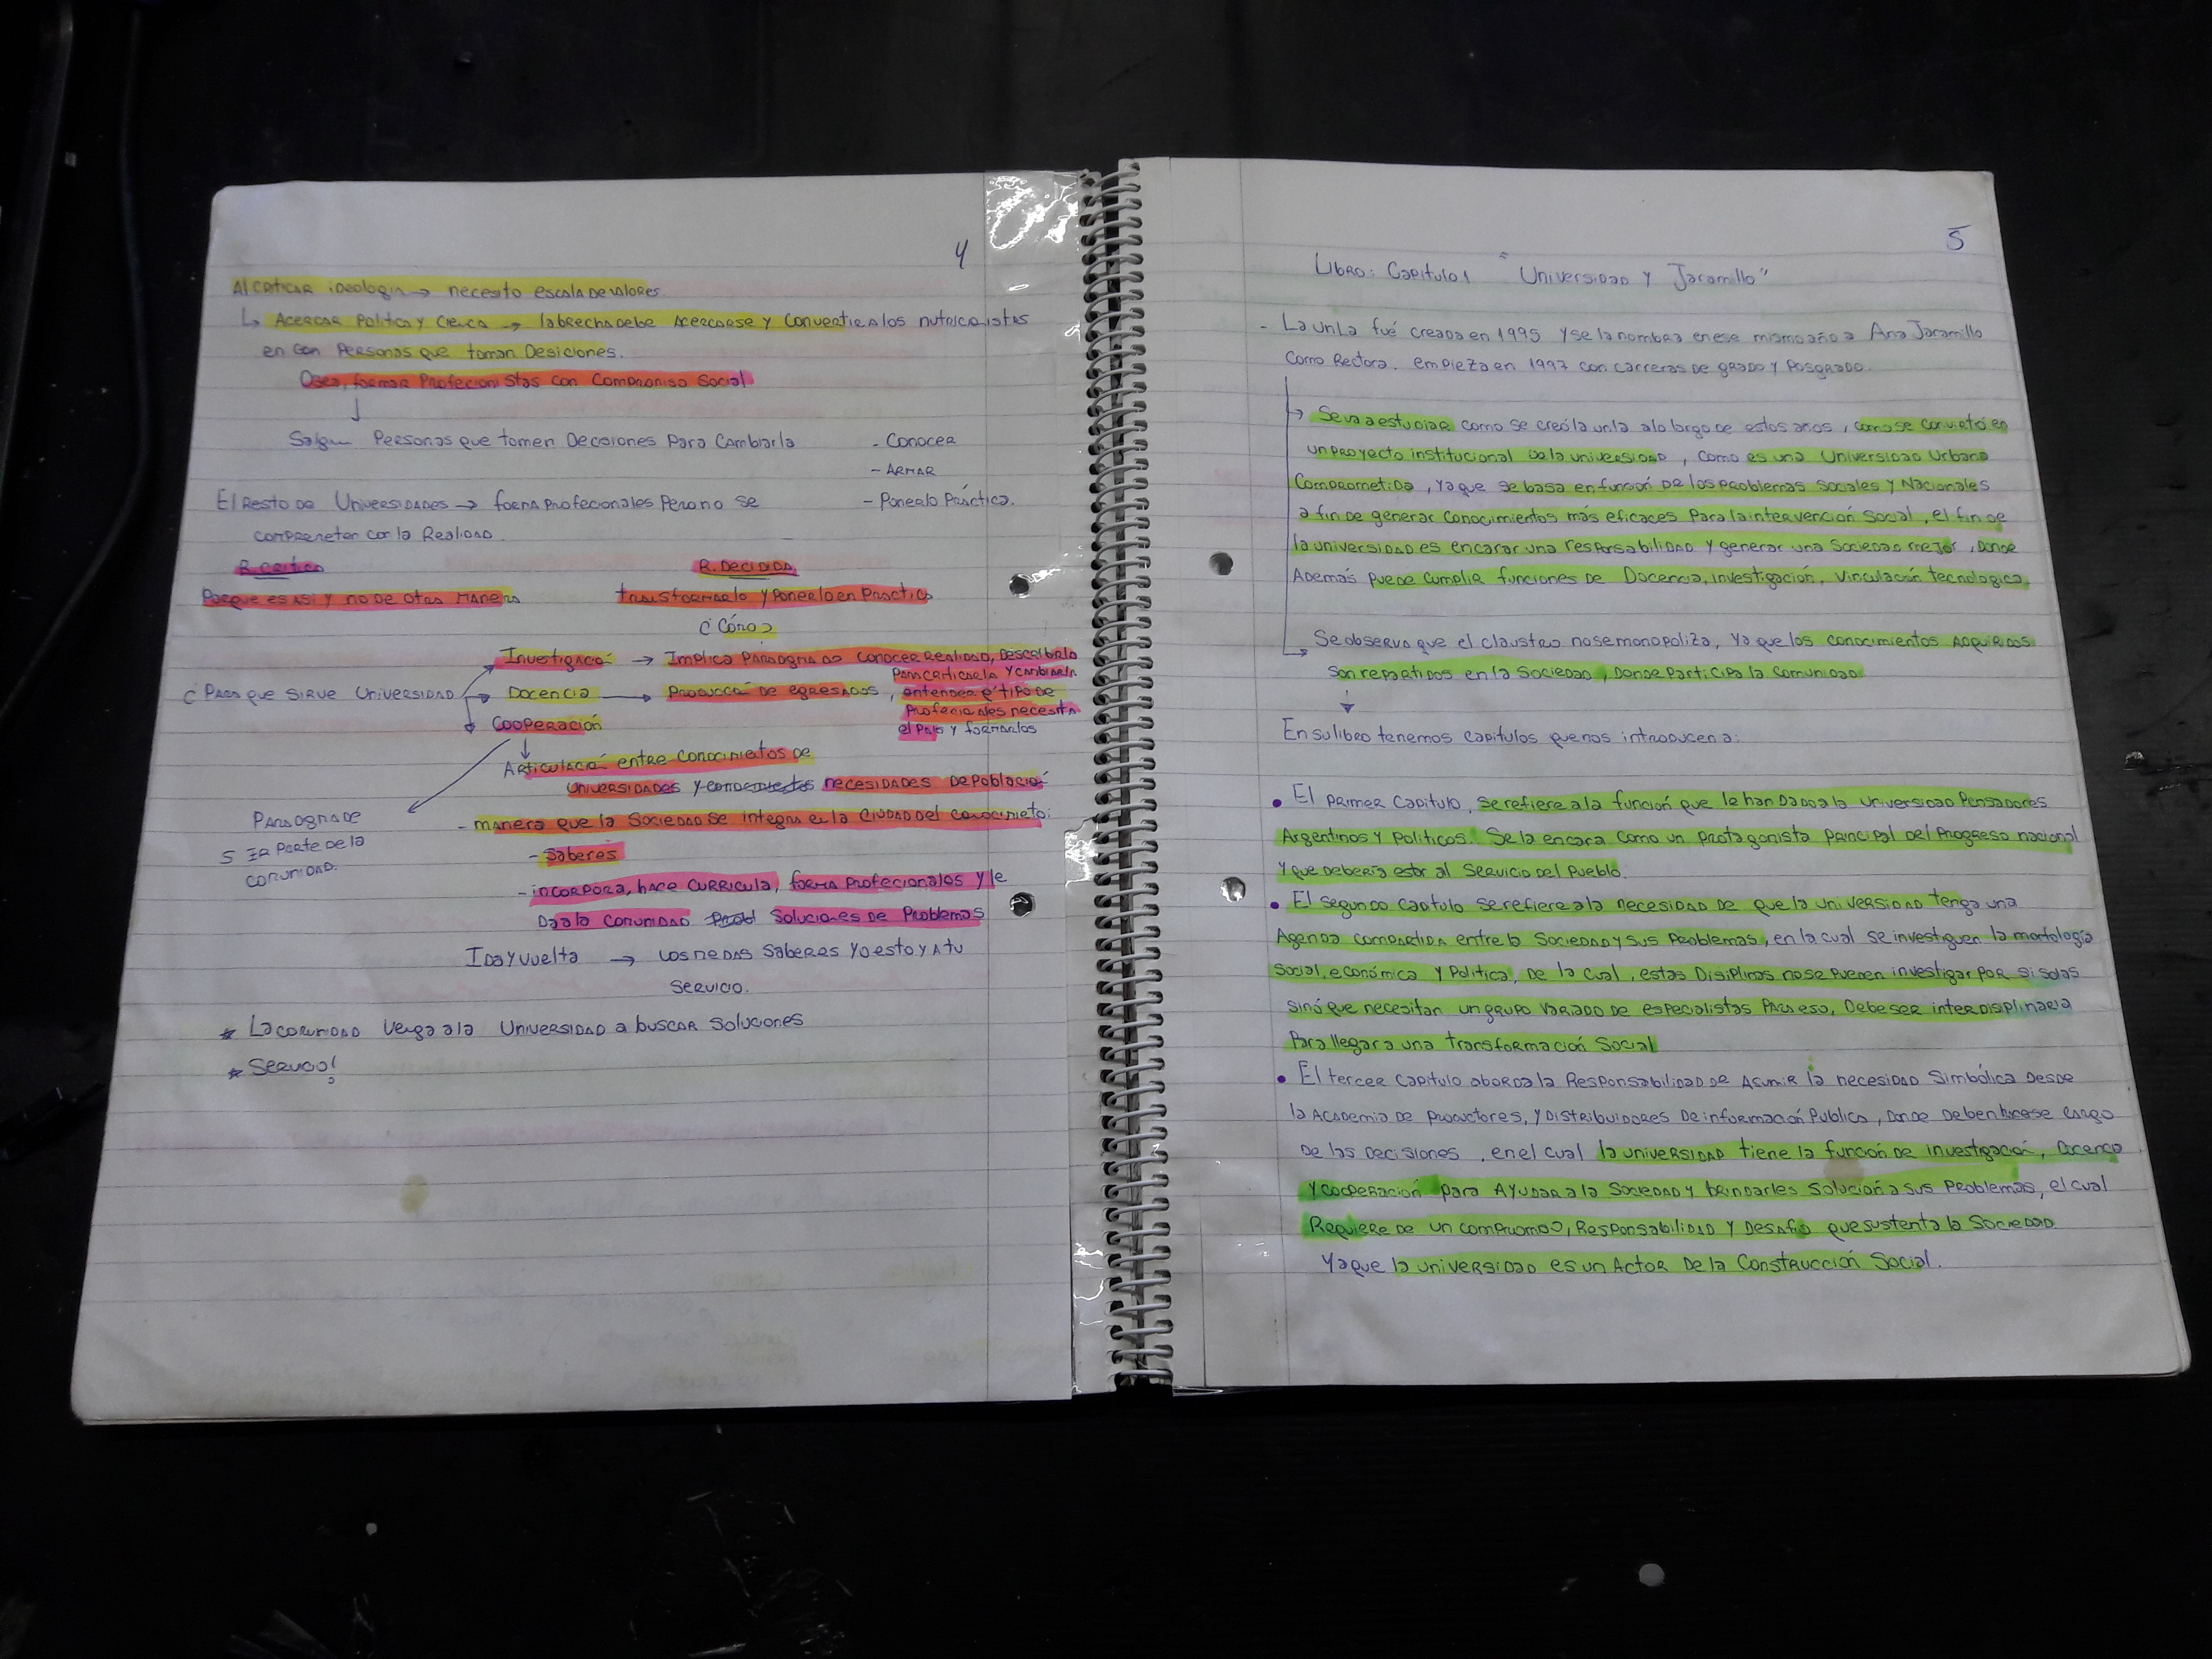 4
Al criticar ideologia → necesito escala de valores.
↳ Acercar Politica y Ciencia → la brecha debe Acercarse y Convertir a los nutricionistas
en con Personas que toman Desiciones.
Osea, formar Profecionistas con Compromiso Social
↓
Salgan Personas que tomen Decisiones Para Cambiarla
- Conocer
- ARMAR
El Resto de Universidades → forma Profecionales Pero no se
- Ponerlo Práctica.
comprometer con la Realidad.
R. Critica
R. Decidida
Porque es Asi y no de otra manera
transformarlo y Ponerlo en Practica
¿Cómo?
Investigació → Implica Paradigma de conocer Realidad, Describirla
Para criticarla y cambiarla
¿Para que sirve Universidad
Docencia → Producció de egresados, entender q' tipo de
Profecionales necesita
Cooperación
el Pais y formarlos
↓
Articulació entre conocimientos de
Universidades y conocimientos necesidades de Població
Paradigma de
- manera que la Sociedad se integra en la Ciudad del Conocimieto:
ser Parte de la
- Saberes
comunidad.
- incorpora, hace curricula, forma Profecionales y le
Da a la comunidad Probl Soluciones de Problemas
Ida y vuelta → vos me das saberes yo estoy a tu
servicio.
* La comunidad venga a la Universidad a buscar soluciones
* Servicio!
5
Libro: Capitulo 1 "Universidad y Jaramillo"
- La unLa fué creada en 1995 y se la nombra en ese mismo año a Ana Jaramillo
como Rectora. empieza en 1997 con carreras de grado y Posgrado.
→ Se va a estudiar como se creó la unla a lo largo de estos años, como se convirtió en
un proyecto institucional de la universidad, como es una Universidad Urbana
Comprometida, ya que se basa en función de los problemas Sociales y Nacionales
a fin de generar conocimientos más eficaces Para la intervención Social, el fin de
la universidad es encarar una responsabilidad y generar una Sociedad mejor, Donde
Además puede cumplir funciones de Docencia, investigación, vinculación tecnologica
→ Se observa que el claustro no se monopoliza, ya que los conocimientos adquiridos
son repartidos en la Sociedad, donde Participa la Comunidad
↓
En su libro tenemos capitulos que nos introducen a:
• El Primer Capitulo, se refiere a la función que le han Dado a la Universidad Pensadores
Argentinos y Politicos. Se la encara como un protagonista principal del Progreso nacional
y que deberia estar al Servicio del Pueblo.
• El segundo Capitulo se refiere a la necesidad de que la universidad tenga una
Agenda compartida entre la Sociedad y sus Problemas, en la cual se investiguen la morfología
social, económica y Politica, de la cual, estas Disiplinas no se pueden investigar por si solas
sinó que necesitan un grupo variado de especialistas Para eso, Debe ser interdisiplinaria
Para llegar a una transformación Social
• El tercer Capitulo aborda la Responsabilidad de asumir la necesidad Simbólica desde
la Academia de Productores, y Distribuidores de información Publica, donde deben hacerse cargo
de las decisiones, en el cual la universidad tiene la función de investigación, Docencia
y cooperación para Ayudar a la Sociedad y brindarles solución a sus Problemas, el cual
Requiere de un compromiso, Responsabilidad y Desafio que sustenta la Sociedad
ya que la universidad es un Actor de la Construcción Social.